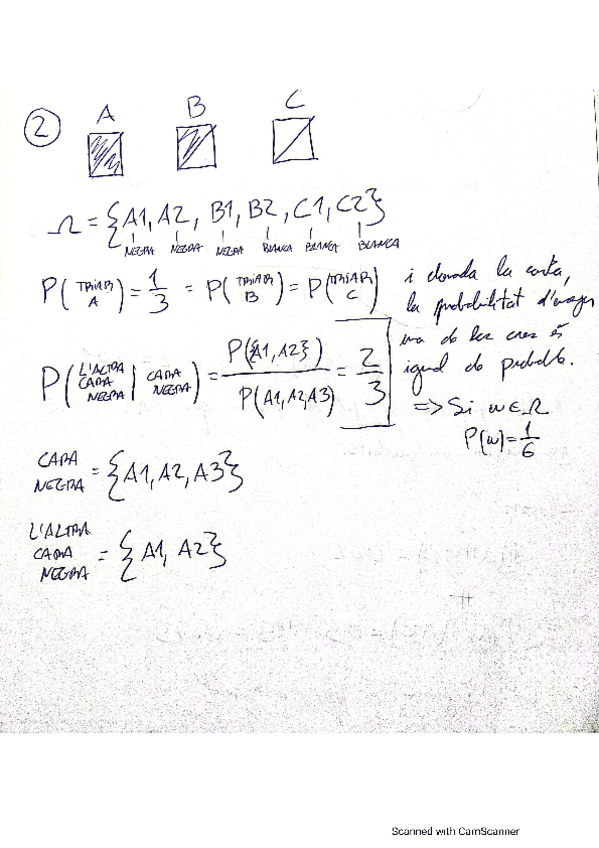 2
A B C
Ω = {A1, A2, B1, B2, C1, C2}
NEGRA NEGRA NEGRA BLANCA BLANCA BLANCA
P(TRIAR A) = 1/3 = P(TRIAR B) = P(TRIAR C)
i donada la carta,
la probabilitat d'escollir
una de les cares és
igual de probable.
=> Si w ∈ Ω
P(w) = 1/6
P(L'ALTRA CARA NEGRA | CARA NEGRA) = P({A1, A2}) / P(A1, A2, A3) = 2/3
CARA NEGRA = {A1, A2, A3}
L'ALTRA CARA NEGRA = {A1, A2}
Scanned with CamScanner